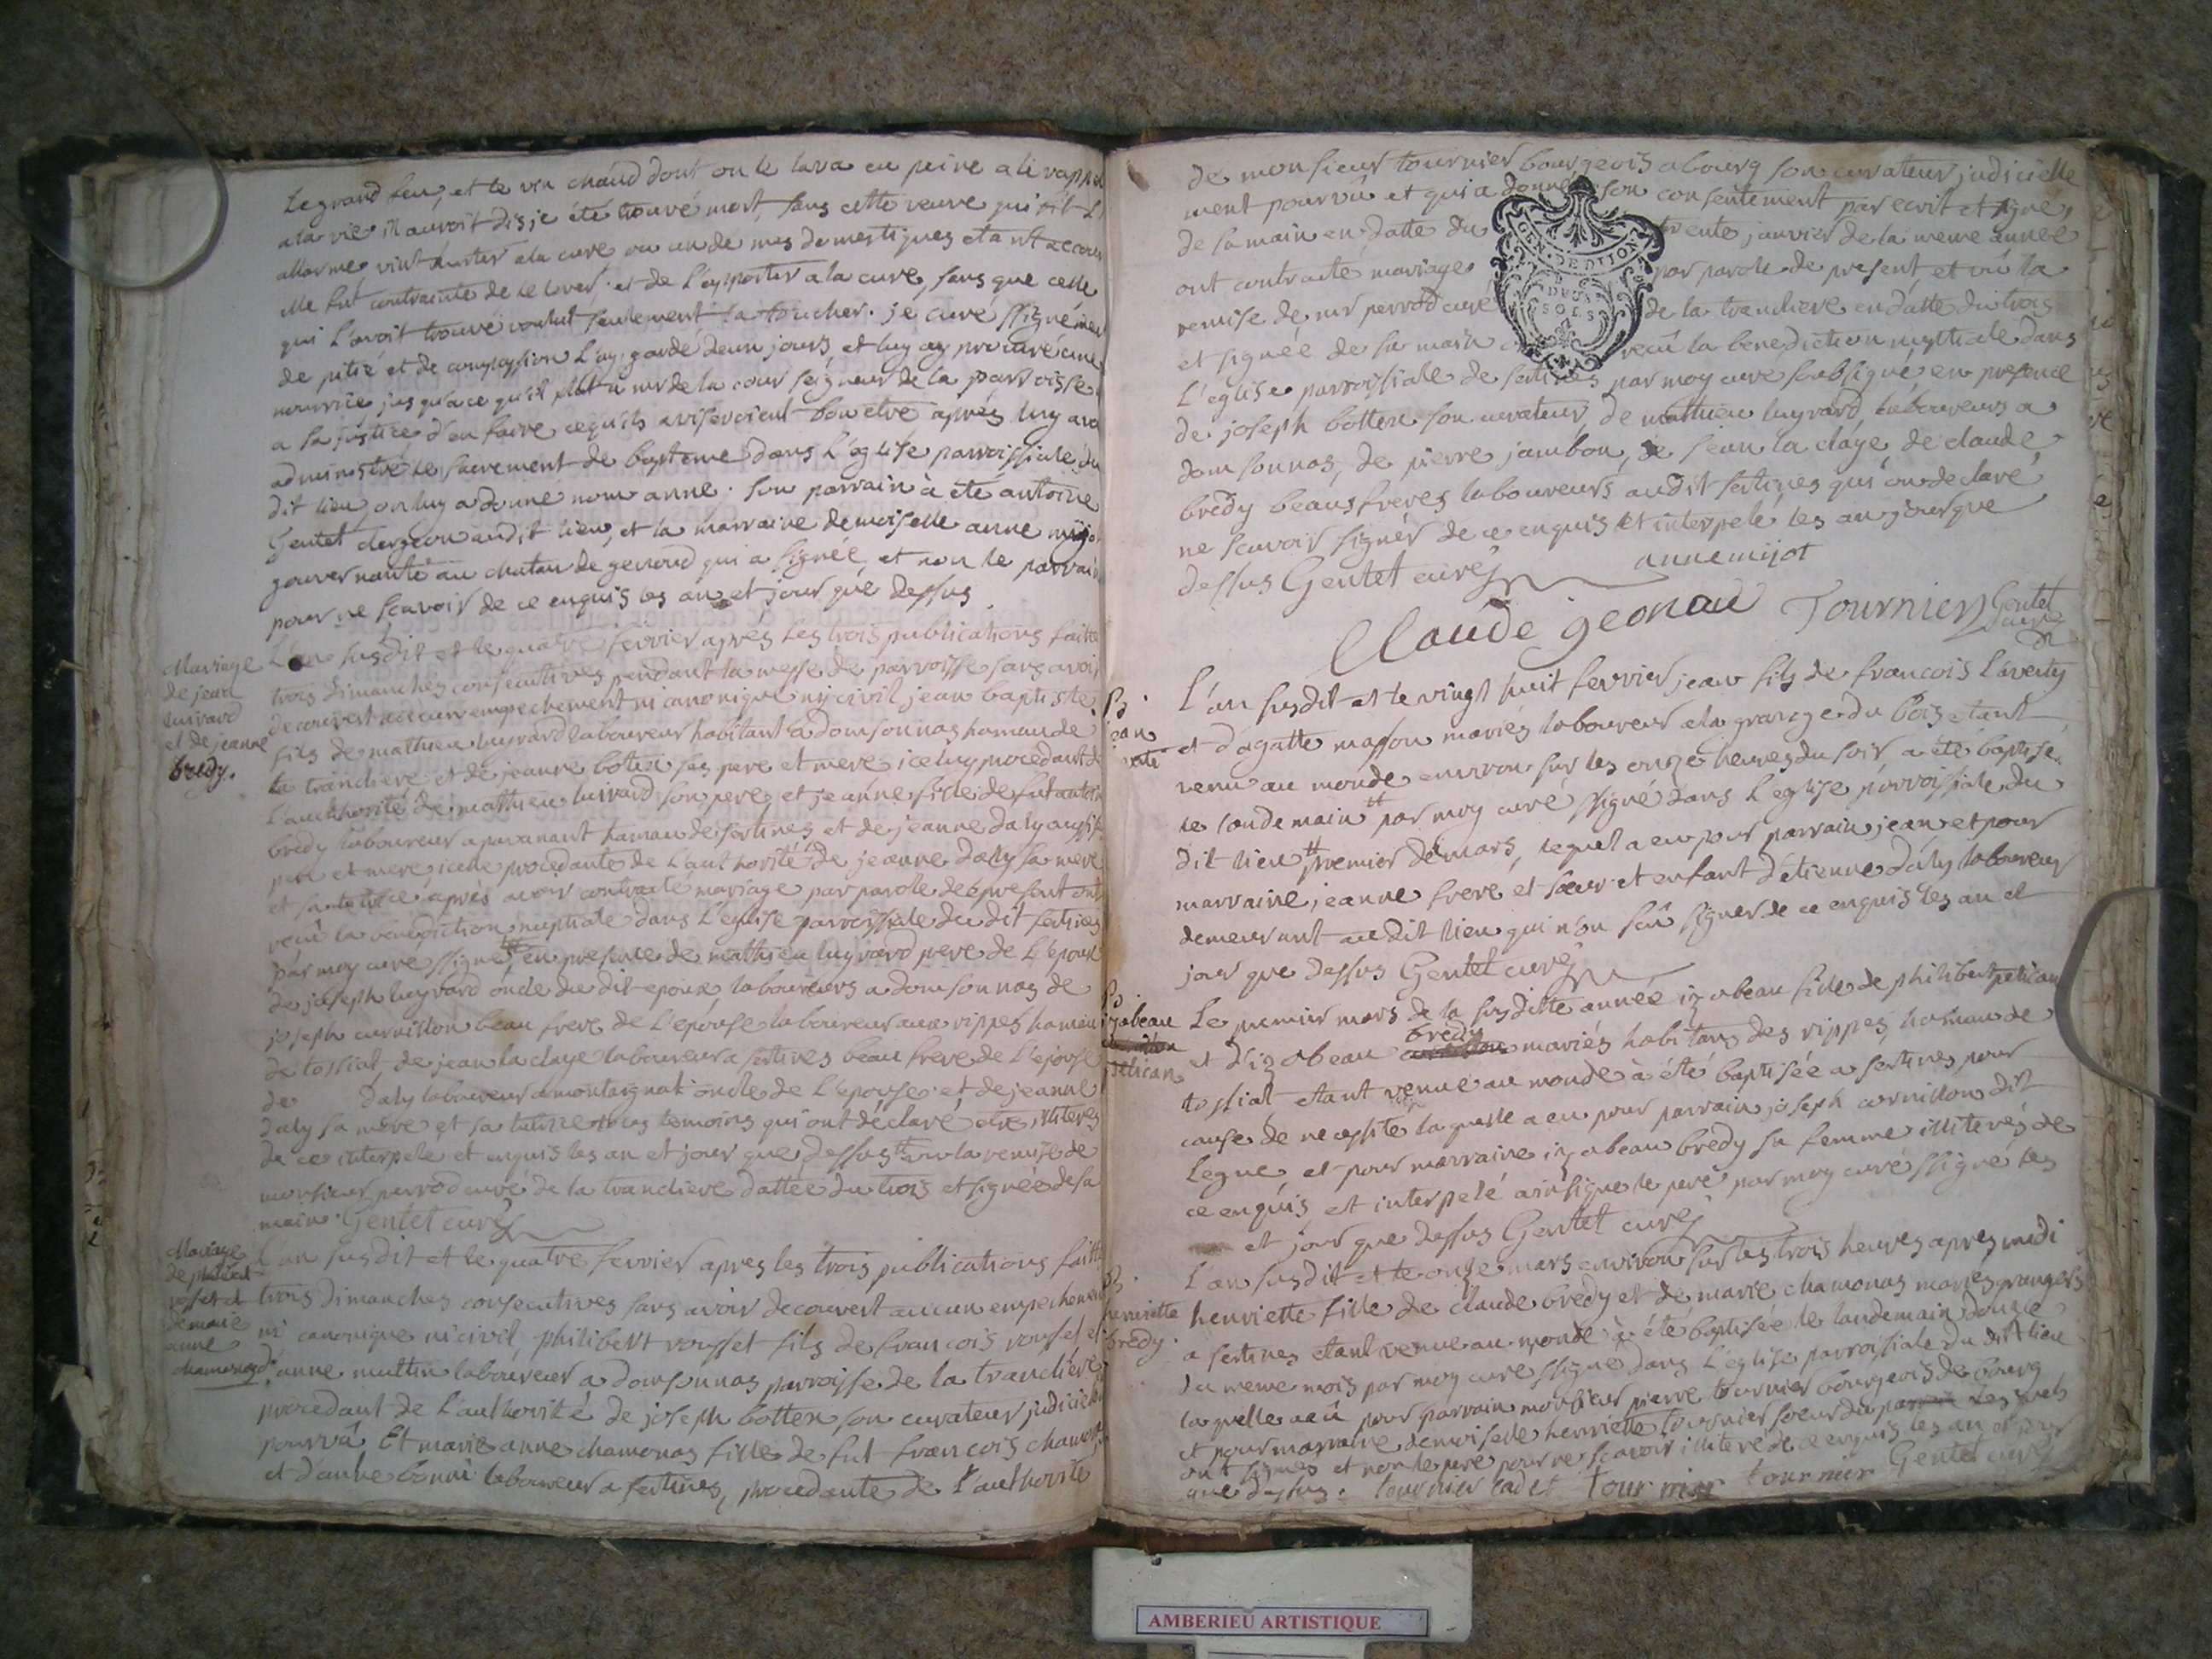 Le grand feu, et le vin chaud dont on le lava eu peine a le
a la vie il auroit dis je été trouvé mort, sans cette veuve qui
allarmée vint hurter a la cure ou un de mes domestiques etant
elle fut contrainte de le lever, et de l'apporter a la cure, sans que celle
qui l'avoit trouvé voulut seulement la toucher. je curé ssigné
de pitié et de compassion l'ay gardé deux jours, et luy ay procuré une
nourrice jusqu'ace qu'il plut a mr de la cour seigneur de la parroisse
a sa justice d'en faire ce qu'ils aviseroient bon etre après luy
administré le sacrement de bapteme dans l'eglise parroissiale du
dit lieu on luy a donné nom anne. son parrain à été antoine
Gentet clergeon audit lieu, et la marraine demoiselle anne
gouvernante au chatau de genoud qui a signée, et non le
pour ne scavoir de ce enquis les an et jour que dessus
Mariage
de jean
luivard
et de jeanne
bredy.
L'an susdit et le quatre fevrier apres les trois publications faite
trois dimanches consecutives pendant la messe de parroisse sans
decouvert aucun empechement ni canonique ny civil jean baptiste
fils de mathieu luyvard laboureur habitant a domsonnas hamau de
la trancliere et de jeanne boten ses pere et mere iceluy procedant de
l'authorité de mathieu luivard son pere, et jeanne fille de fut
bredy laboureur a hamau de sertines et de jeanne daly
pere et mere, icelle procedante de l'authorité de jeanne daly sa mere
et sa tutrice après avoir contracté mariage par parole de present ont
receü la benediction nuptiale dans l'eglise parroissiale du dit sertines
par moy curé ssigné en presence de mathieu luyvard pere de l'epoux
de joseph luyvard oncle du dit epoux, laboureurs a domsonnas de
joseph cornillon beau frere de l'epouse laboureur aux rippes
de tossiat, de jean la claye laboureur a sertines beau frere de l'epouse
de daly laboureur a montaignat oncle de l'epouse et de jeanne
daly sa mere et sa tutrice temoins qui ont déclaré etre illiteres
de ce interpele et enquis les an et jour que dessus vu la remise de
monsieur perrod curé de la trancliere dattée du trois et signée de sa
main. Gentet curé
Mariage
de philibert
rousset et
de marie
anne
chamonas
L'an susdit et le quatre fevrier apres les trois publications
trois dimanches consecutives sans avoir decouvert aucun
ni canonique ni civil, philibert rousset fils de francois rousset et
d'anne laboureur a domsonnas parroisse de la tranclière
procedant de l'authorité de joseph botten, son curateur
pourvû, Et marie anne chamonas fille de fut francois
et d'anne laboureur a sertines, procedante de l'authorité
de monsieur tournier bourgeois a bourg son curateur judicielle
ment pourvû et qui a donné son consentement par ecrit et signé
de sa main en datte du trente janvier de la meme année
ont contracté mariage par parole de present, et vû la
remise de mr perrod curé de la trancliere en datte du trois
et signée de sa main receü la benediction nuptiale dans
l'eglise parroissiale de sertines par moy curé soubsigné en presence
de joseph botten son curateur, de mathieu luyvard laboureurs a
domsonnas, de pierre jambon, de jean la claye de claude
bredy beaus freres laboureurs audit sertines qui on declaré
ne scavoir signer de ce enquis et interpelé les an jour que
dessus Gentet curé
anne mijot
Claude geonau Tournier Gentet
curé
GEN. DE DIJON
DEUX
SOLS
B.
jean
L'an susdit et le vingt huit fevrier jean fils de francois
et d'agatte masson mariés laboureur a la grange du bois etant
venu au monde environ sur les onze heures du soir, a été baptisé
le landemain par moy curé ssigné dans l'eglise parroissiale du
dit lieu premier de mars, lequel a eu pour parrain jean et pour
marraine jeanne frere et soeur et enfant d'etienne daly laboureur
demeurant au dit lieu qui n'on sçû signer de ce enquis les an et
jour que dessus Gentet curé
B.
izabeau
pelican
Le premier mars de la susditte année izabeau fille de philibert pelican
et d'izabeau bredy mariés habitans des rippes hamau de
tossiat etant venue au monde à été baptisée a sertines pour
cause de necessité laquelle a eu pour parrain joseph cornillon dit
Legue, et pour marraine izabeau bredy sa femme illiterés de
ce enquis et interpelé ainsi que le pere par moy curé ssigné les
et jour que dessus Gentet curé
B.
henriette
bredy.
L'an susdit et le onze mars environ sur les trois heures apres midi
henriette fille de claude bredy et de marie chamonas mariés grangers
a sertines etant venue au monde à été baptisée le landemain douze
du meme mois par moy curé ssigné dans l'eglise parroissiale du dit lieu
laquelle a eü pour parrain monsieur pierre tournier bourgeois de bourg
et pour marraine demoiselle henriette tournier soeur du
ont signes et non le pere pour ne scavoir illiteré de ce enquis les an et jour
que dessus. tournier cadet tournier tournier Gentet curé
AMBERIEU ARTISTIQUE